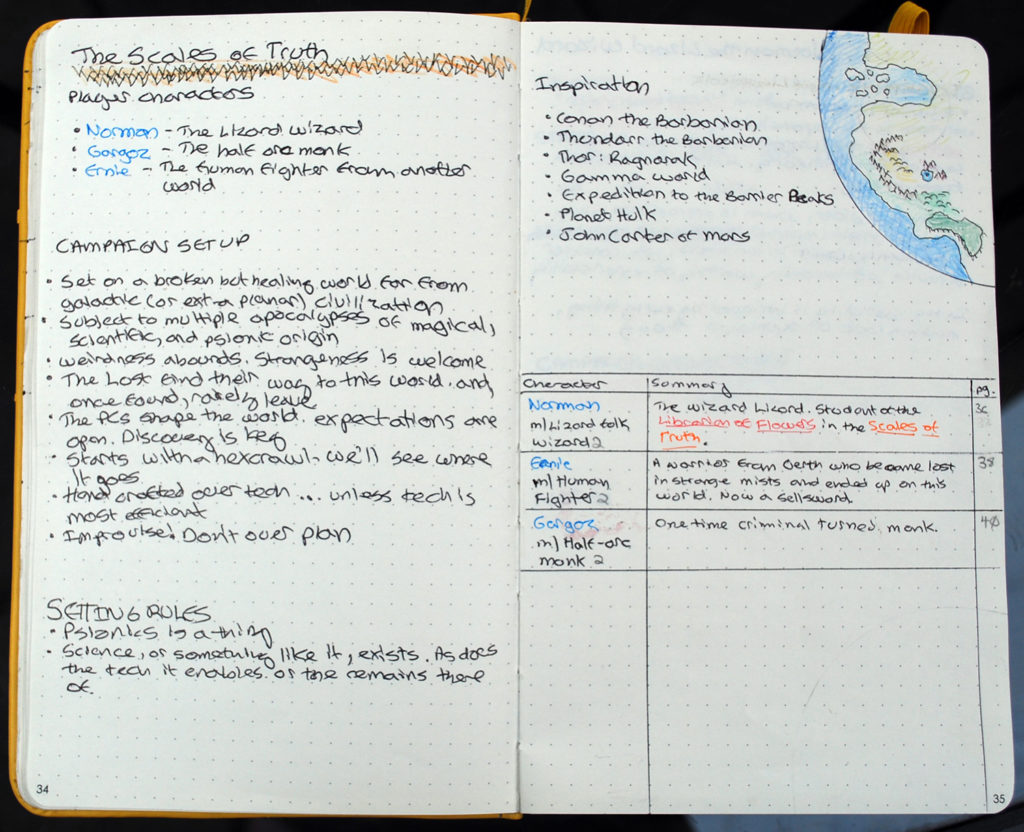 The Scales of Truth
Player Characters
• Norman - The Lizard Wizard
• Gorgoz - The half orc monk
• Ernie - The Human Fighter from another
world
CAMPAIGN SET UP
• Set on a broken but healing world far from
galactic (or extra planar) civilization
• Subject to multiple apocalypses of magical,
scientific, and psionic origin
• Weirdness abounds. Strangeness is welcome
• The Lost find their way to this world. and
once found, rarely leave
• The PCs shape the world. expectations are
open. Discovery is key
• Starts with a hexcrawl - we'll see where
it goes
• Hand crafted over tech ... unless tech is
most efficient
• Improvise! Don't over plan
SETTING RULES
• Psionics is a thing
• Science, or something like it, exists. As does
the tech it enables or the remains there
of.
34
Inspiration
• Conan the Barbarian
• Thundarr the Barbarian
• Thor: Ragnarok
• Gamma World
• Expedition to the Barrier Peaks
• Planet Hulk
• John Carter of Mars
Character Summary pg.
Norman The Wizard Lizard. Student of the 36
m/Lizard folk Librarian of Flowers in the Scales of
Wizard 2 Truth.
Ernie A warrior from Oerth who became lost 38
m/Human in strange mists and ended up on this
Fighter 2 world. Now a sellsword.
Gorgoz One time criminal turned monk. 40
m/Half-orc
monk 2
35